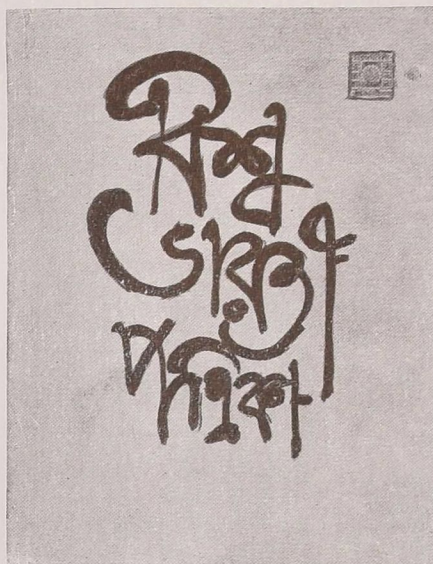 বিশ্ব
ভারতী
পত্রিকা